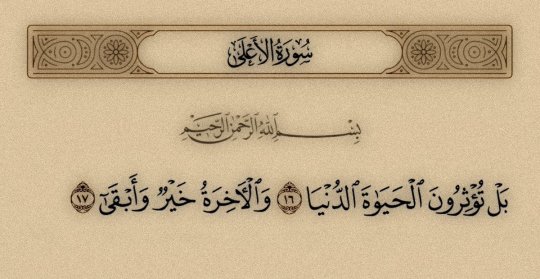 سُورَةُ الأَعْلَى
بِسْمِ اللَّهِ الرَّحْمَٰنِ الرَّحِيمِ
بَلْ تُؤْثِرُونَ الْحَيَوٰةَ الدُّنْيَا ١٦ وَالْآخِرَةُ خَيْرٌ وَأَبْقَىٰٓ ١٧